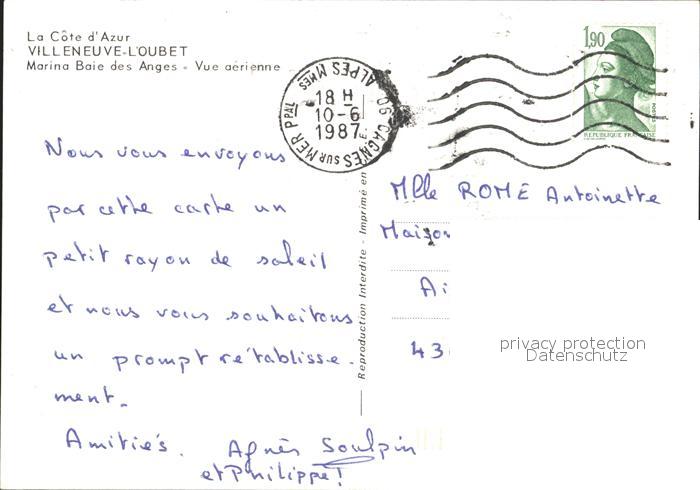 La Côte d'Azur
VILLENEUVE-LOUBET
Marina Baie des Anges - Vue aérienne
1,90
POSTES
REPUBLIQUE FRANÇAISE
06 CAGNES SUR MER PPAL
ALPES MMES
18 H
10-6
1987
Nous vous envoyons
par cette carte un
petit rayon de soleil
et nous vous souhaitons
un prompt rétablisse-
ment.
Amitiés. Agnès Soulpin
et Philippe!
Reproduction Interdite - Imprimé en
Mlle ROME Antoinette
Maison
Ai
43
privacy protection
Datenschutz